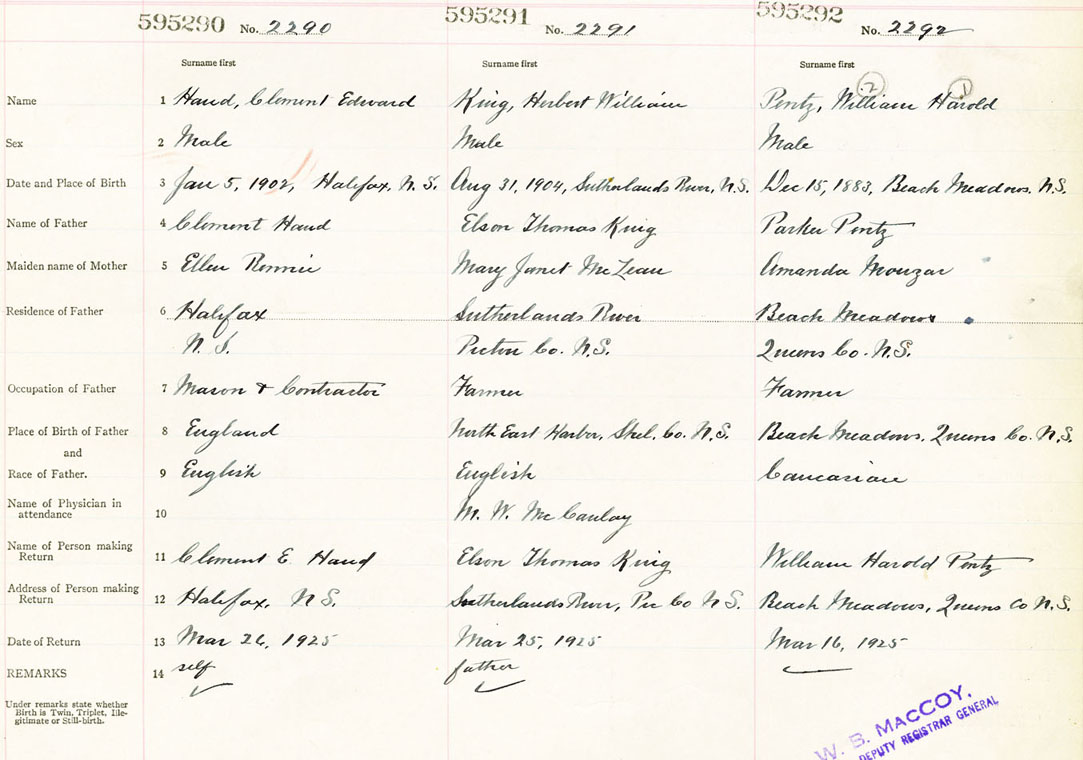 595290 No. 2290 595291 No. 2291 595292 No. 2292
Surname first Surname first Surname first
2 1
Name 1 Hand, Clement Edward King, Herbert William Pentz, William Harold
Sex 2 Male Male Male
Date and Place of Birth 3 Jan 5, 1902, Halifax, N.S. Aug 31, 1904, Sutherlands River, N.S. Dec 15, 1883, Beach Meadows. N.S.
Name of Father 4 Clement Hand Elson Thomas King Parker Pentz
Maiden name of Mother 5 Ellen Rennie Mary Janet McLean Amanda Mouzar
Residence of Father 6 Halifax Sutherlands River Beach Meadows
N.S. Pictou Co. N.S. Queens Co. N.S.
Occupation of Father 7 Mason & Contractor Farmer Farmer
Place of Birth of Father 8 England North East Harbor, Shel. Co. N.S. Beach Meadows, Queens Co. N.S.
and
Race of Father. 9 English English Caucasian
Name of Physician in
attendance 10 M. W. McCaulay
Name of Person making
Return 11 Clement E. Hand Elson Thomas King William Harold Pentz
Address of Person making
Return 12 Halifax, N.S. Sutherlands River, Pic Co N.S. Beach Meadows, Queens Co N.S.
Date of Return 13 Mar 26, 1925 Mar 25, 1925 Mar 16, 1925
REMARKS 14 self father
Under remarks state whether
Birth is Twin, Triplet, Ille-
gitimate or Still-birth.
W. B. MACCOY,
DEPUTY REGISTRAR GENERAL